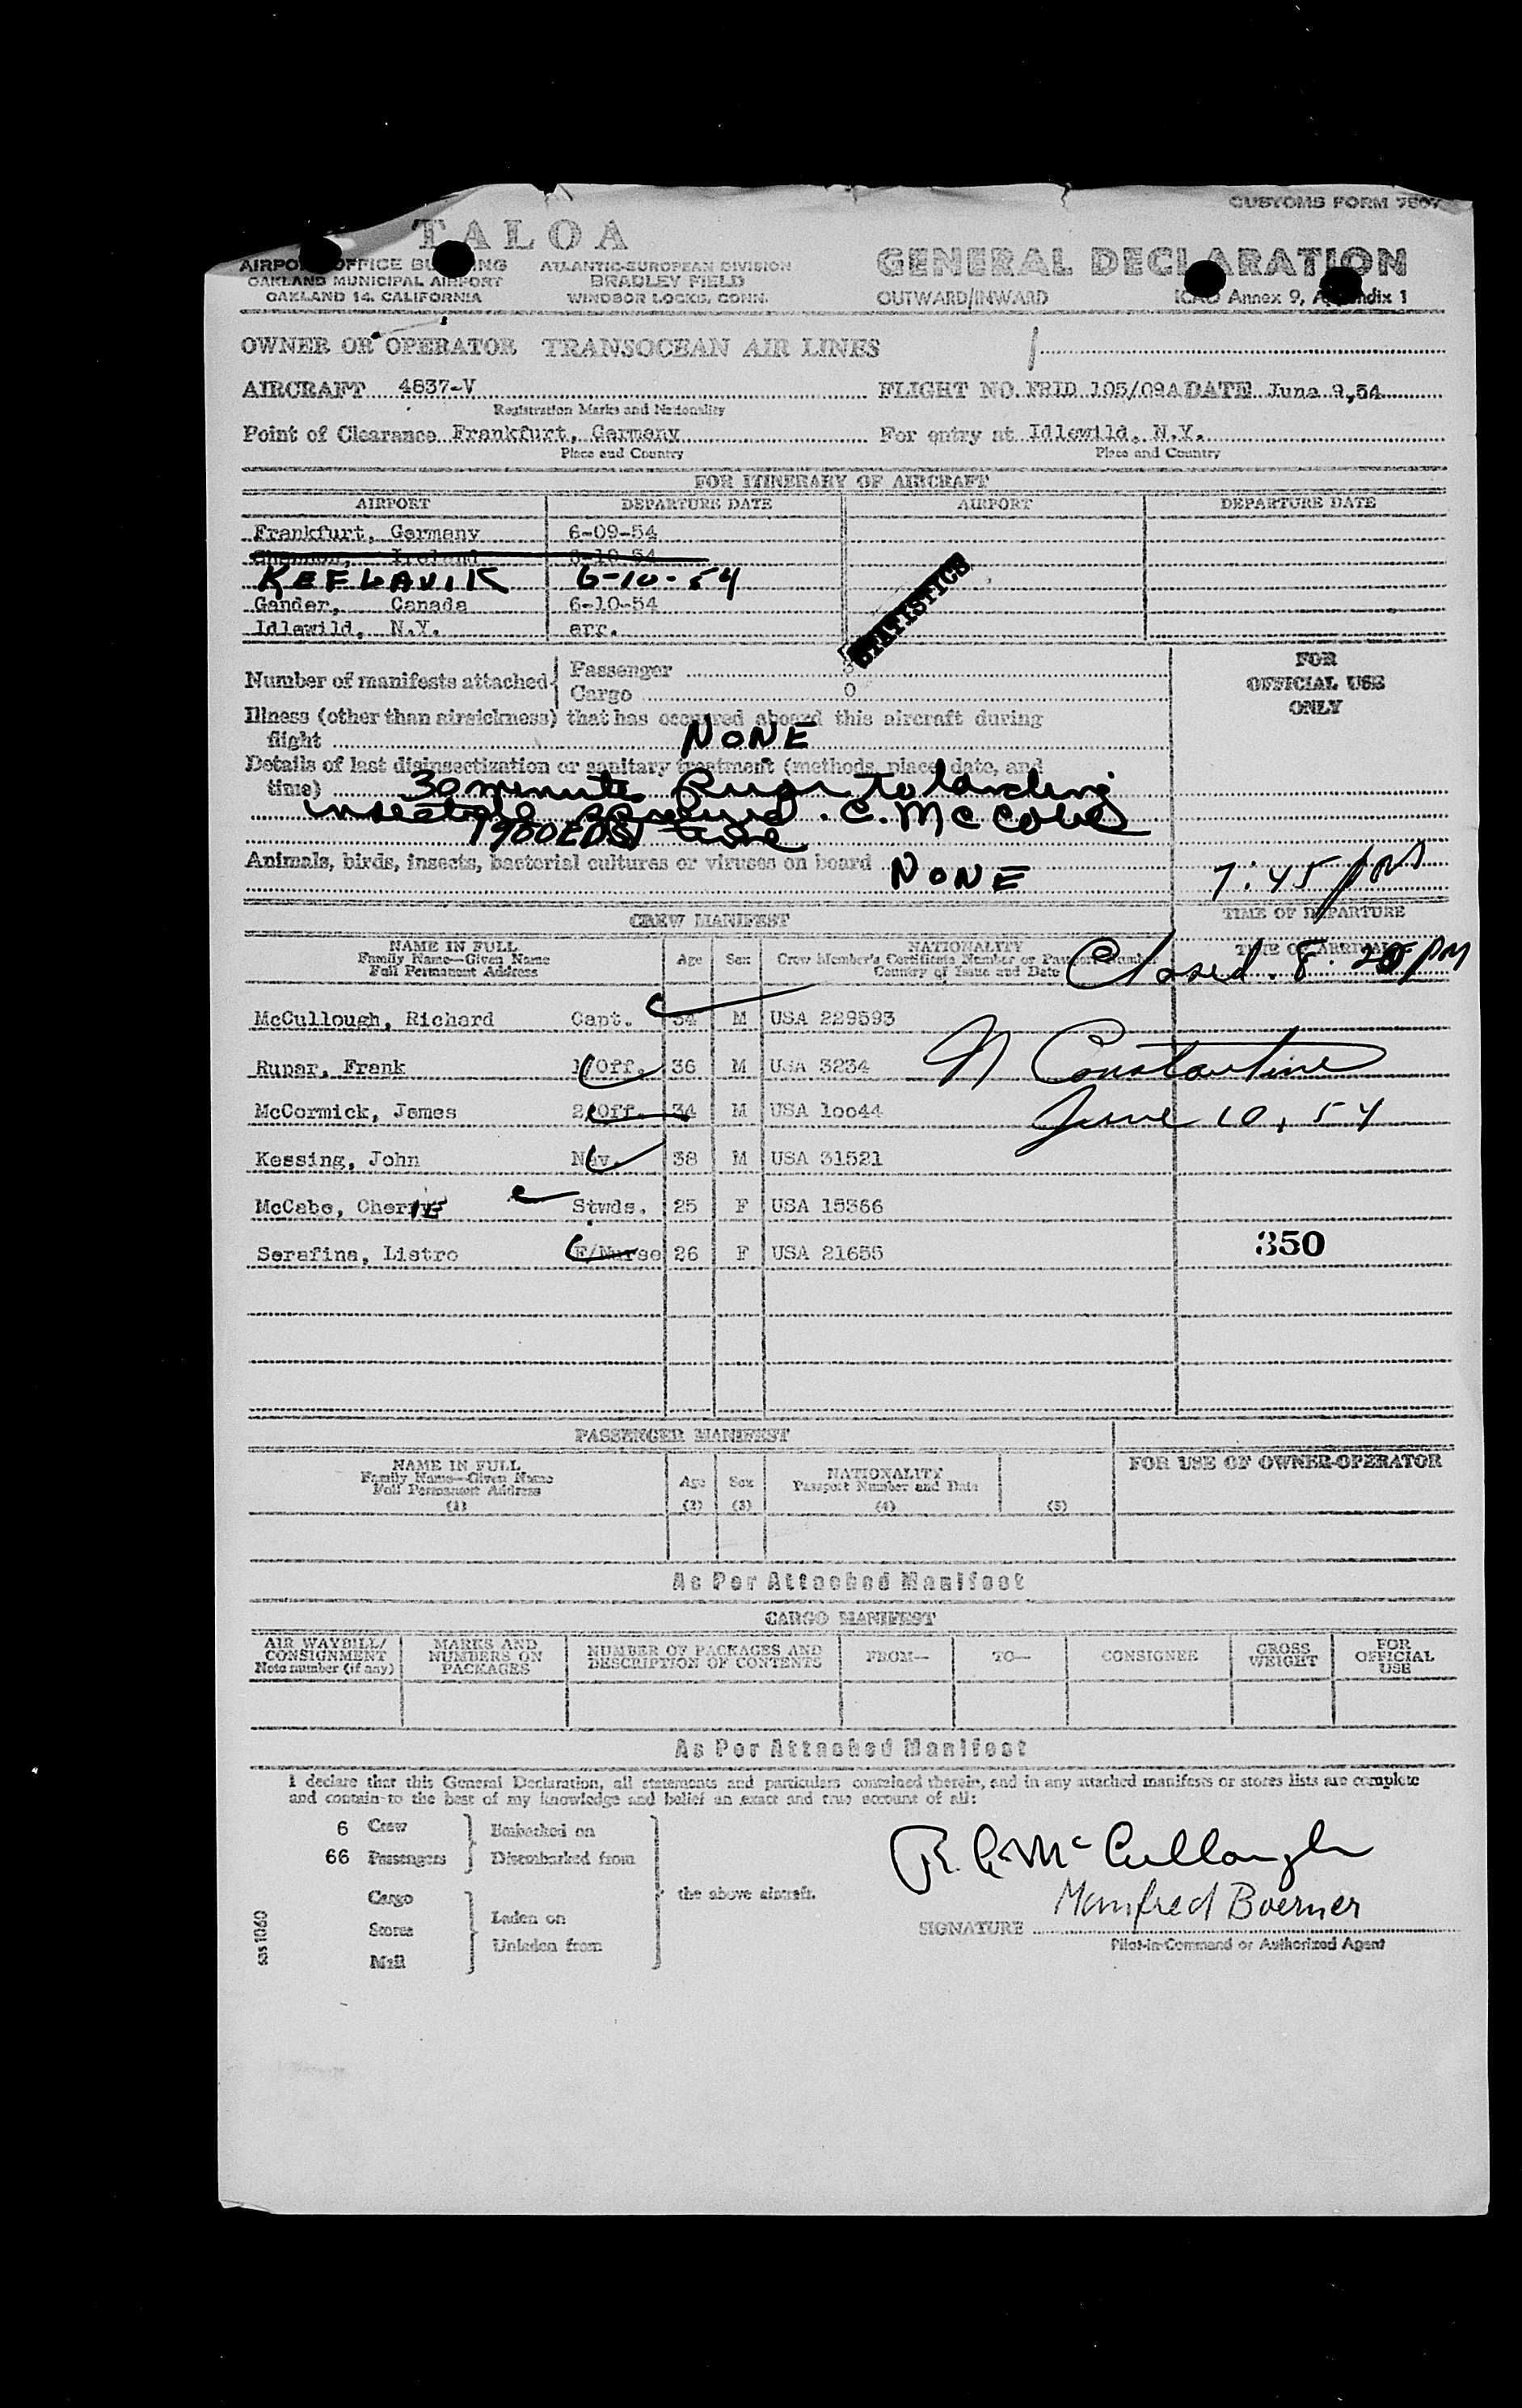 CUSTOMS FORM 7507
TALOA
AIRPORT OFFICE BUILDING
OAKLAND MUNICIPAL AIRPORT
OAKLAND 14, CALIFORNIA
ATLANTIC-EUROPEAN DIVISION
BRADLEY FIELD
WINDSOR LOCKS, CONN.
GENERAL DECLARATION
OUTWARD/INWARD ICAO Annex 9, Appendix 1
OWNER OR OPERATOR TRANSOCEAN AIR LINES
AIRCRAFT 4837-V FLIGHT NO. FRID 105/09A DATE June 9,54
Registration Marks and Nationality
Point of Clearance Frankfurt, Germany For entry at Idlewild, N.Y.
Place and Country Place and Country
FOR ITINERARY OF AIRCRAFT
AIRPORT DEPARTURE DATE AIRPORT DEPARTURE DATE
Frankfurt, Germany 6-09-54
Shannon, Ireland 6-10-54
KEFLAVIK 6-10-54
Gander, Canada 6-10-54
Idlewild, N.Y. arr.
STATISTICS
Number of manifests attached Passenger 3
Cargo 0
FOR
OFFICIAL USE
ONLY
Illness (other than airsickness) that has occurred aboard this aircraft during
flight NONE
Details of last disinsectization or sanitary treatment (methods, place, date, and
time) 30 minutes Prior to landing
C. McCabe
1900 EDST time
Animals, birds, insects, bacterial cultures or viruses on board NONE
7:45 pm
TIME OF DEPARTURE
CREW MANIFEST
TIME OF ARRIVAL
NAME IN FULL
Family Name—Given Name
Full Permanent Address
Age Sex
NATIONALITY
Crew Member's Certificate Number or Passport Number
Country of Issue and Date
Closed. 8:20 PM
McCullough, Richard Capt. 34 M USA 229593
Rupar, Frank 1/Off. 36 M USA 3234
N Constantine
McCormick, James 2/Off. 34 M USA 10044
June 10, 54
Kessing, John Nav. 38 M USA 31521
McCabe, CherrIE Stwds. 25 F USA 15366
Serafina, Listro F/Nurse 26 F USA 21655
350
PASSENGER MANIFEST
NAME IN FULL
Family Name—Given Name
Full Permanent Address
(1)
Age
(2)
Sex
(3)
NATIONALITY
Passport Number and Date
(4)
(5)
FOR USE OF OWNER-OPERATOR
As Per Attached Manifest
CARGO MANIFEST
AIR WAYBILL/
CONSIGNMENT
Note number (if any)
MARKS AND
NUMBERS ON
PACKAGES
NUMBER OF PACKAGES AND
DESCRIPTION OF CONTENTS
FROM—
TO—
CONSIGNEE
GROSS
WEIGHT
FOR
OFFICIAL
USE
As Per Attached Manifest
I declare that this General Declaration, all statements and particulars contained therein, and in any attached manifests or stores lists are complete
and contain to the best of my knowledge and belief an exact and true account of all:
6 Crew Embarked on
66 Passengers Disembarked from
the above aircraft.
Cargo
Stores Laden on
Mail Unladen from
R. McCullough
Manfred Boerner
SIGNATURE
Pilot-in-Command or Authorized Agent